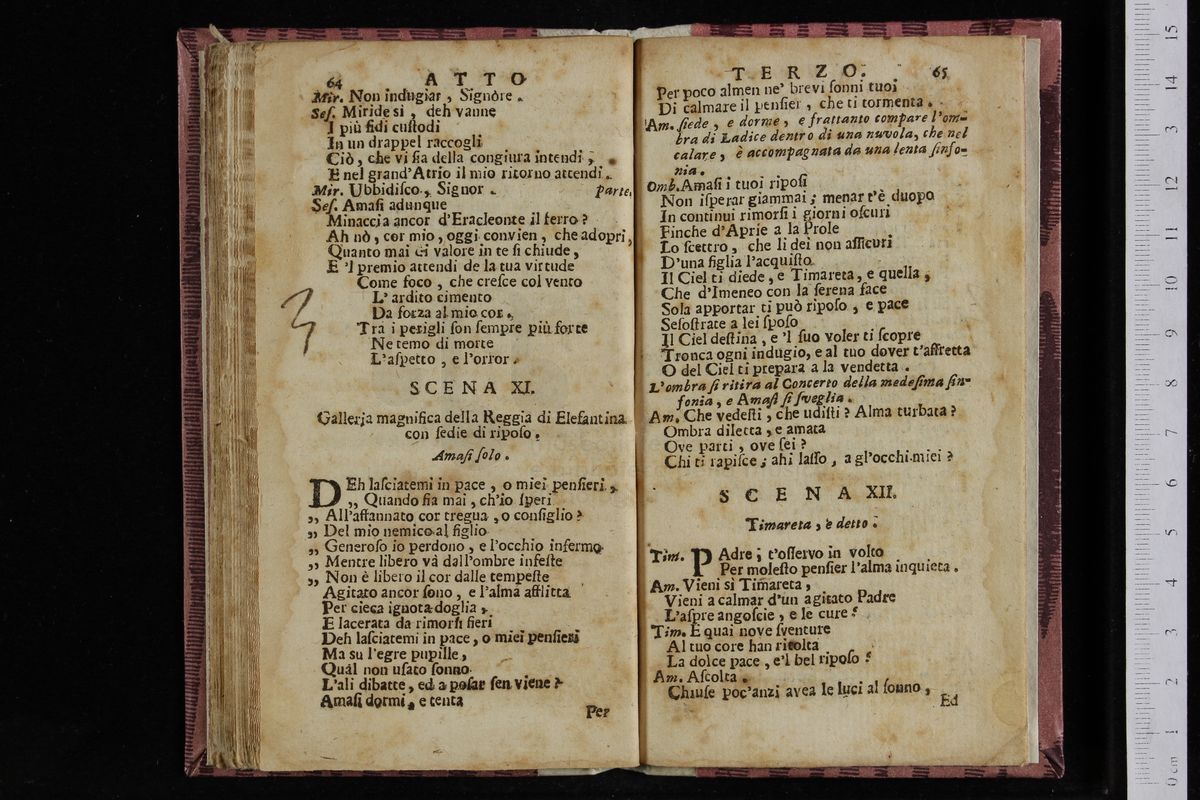 64 ATTO
Mir. Non indugiar, Signòre.
Seſ. Miride sì, deh vanne
I più fidi cuſtodi
In un drappel raccogli
Ciò, che vi ſia della congiura intendi,
E nel grand'Atrio il mio ritorno attendi.
Mir. Ubbidiſco, Signor. parte,
Seſ. Amaſi adunque
Minaccia ancor d'Eracleonte il ferro?
Ah nò, cor mio, oggi convien, che adopri,
Quanto mai di valore in te ſi chiude,
E 'l premio attendi de la tua virtude
Come foco, che creſce col vento
L' ardito cimento
Da forza al mio cor.
Tra i perigli ſon ſempre più forte
Ne temo di morte
L'aſpetto, e l'orror.
SCENA XI.
Galleria magnifica della Reggia di Elefantina
con ſedie di ripoſo.
Amaſi ſolo.
DEh laſciatemi in pace, o miei penſieri,
„ Quando fia mai, ch'io ſperi
„ All'affannato cor tregua, o conſiglio?
„ Del mio nemico al figlio
„ Generoſo io perdono, e l'occhio infermo
„ Mentre libero và dall'ombre infeſte
„ Non è libero il cor dalle tempeſte
Agitato ancor ſono, e l'alma afflitta
Per cieca ignota doglia,
E lacerata da rimorſi fieri
Deh laſciatemi in pace, o miei penſieri
Ma su l'egre pupille,
Quál non uſato ſonno
L'ali dibatte, ed a poſar ſen viene?
Amaſi dormi, e tenta
Per
TERZO. 65
Per poco almen ne' brevi ſonni tuoi
Di calmare il penſier, che ti tormenta.
Am. ſiede, e dorme, e frattanto compare l'om-
bra di Ladice dentro di una nuvola, che nel
calare, è accompagnata da una lenta ſinfo-
nia.
Omb. Amaſi i tuoi ripoſi
Non iſperar giammai; menar t'è duopo
In continui rimorſi i giorni oſcuri
Finche d'Aprie a la Prole
Lo ſcettro, che li dei non aſſicuri
D'una figlia l'acquiſto
Il Ciel ti diede, e Timareta, e quella,
Che d'Imeneo con la ſerena face
Sola apportar ti può ripoſo, e pace
Seſoſtrate a lei ſpoſo
Il Ciel deſtina, e 'l ſuo voler ti ſcopre
Tronca ogni indugio, e al tuo dover t'affretta
O del Ciel ti prepara a la vendetta.
L'ombra ſi ritira al Concerto della medeſima ſin-
fonia, e Amaſi ſi ſveglia.
Am. Che vedeſti, che udiſti? Alma turbata?
Ombra diletta, e amata
Ove parti, ove ſei?
Chi ti rapiſce; ahi laſſo, a gl'occhi miei?
SCENA XII.
Timareta, e detto.
Tim. PAdre; t'oſſervo in volto
Per moleſto penſier l'alma inquieta.
Am. Vieni sì Timareta,
Vieni a calmar d'un agitato Padre
L'aſpre angoſcie, e le cure?
Tim. E quai nove ſventure
Al tuo core han ritolta
La dolce pace, e'l bel ripoſo?
Am. Aſcolta.
Chiuſe poc'anzi avea le luci al ſonno,
Ed
0 cm 1 2 3 4 5 6 7 8 9 10 11 12 13 14 15